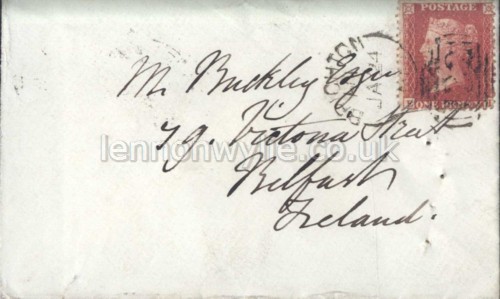 POSTAGE
BRIGHTON
JA 24
M. Buckley Esqr
79. Victoria Street
Belfast
Ireland.
lennonwylie.co.uk